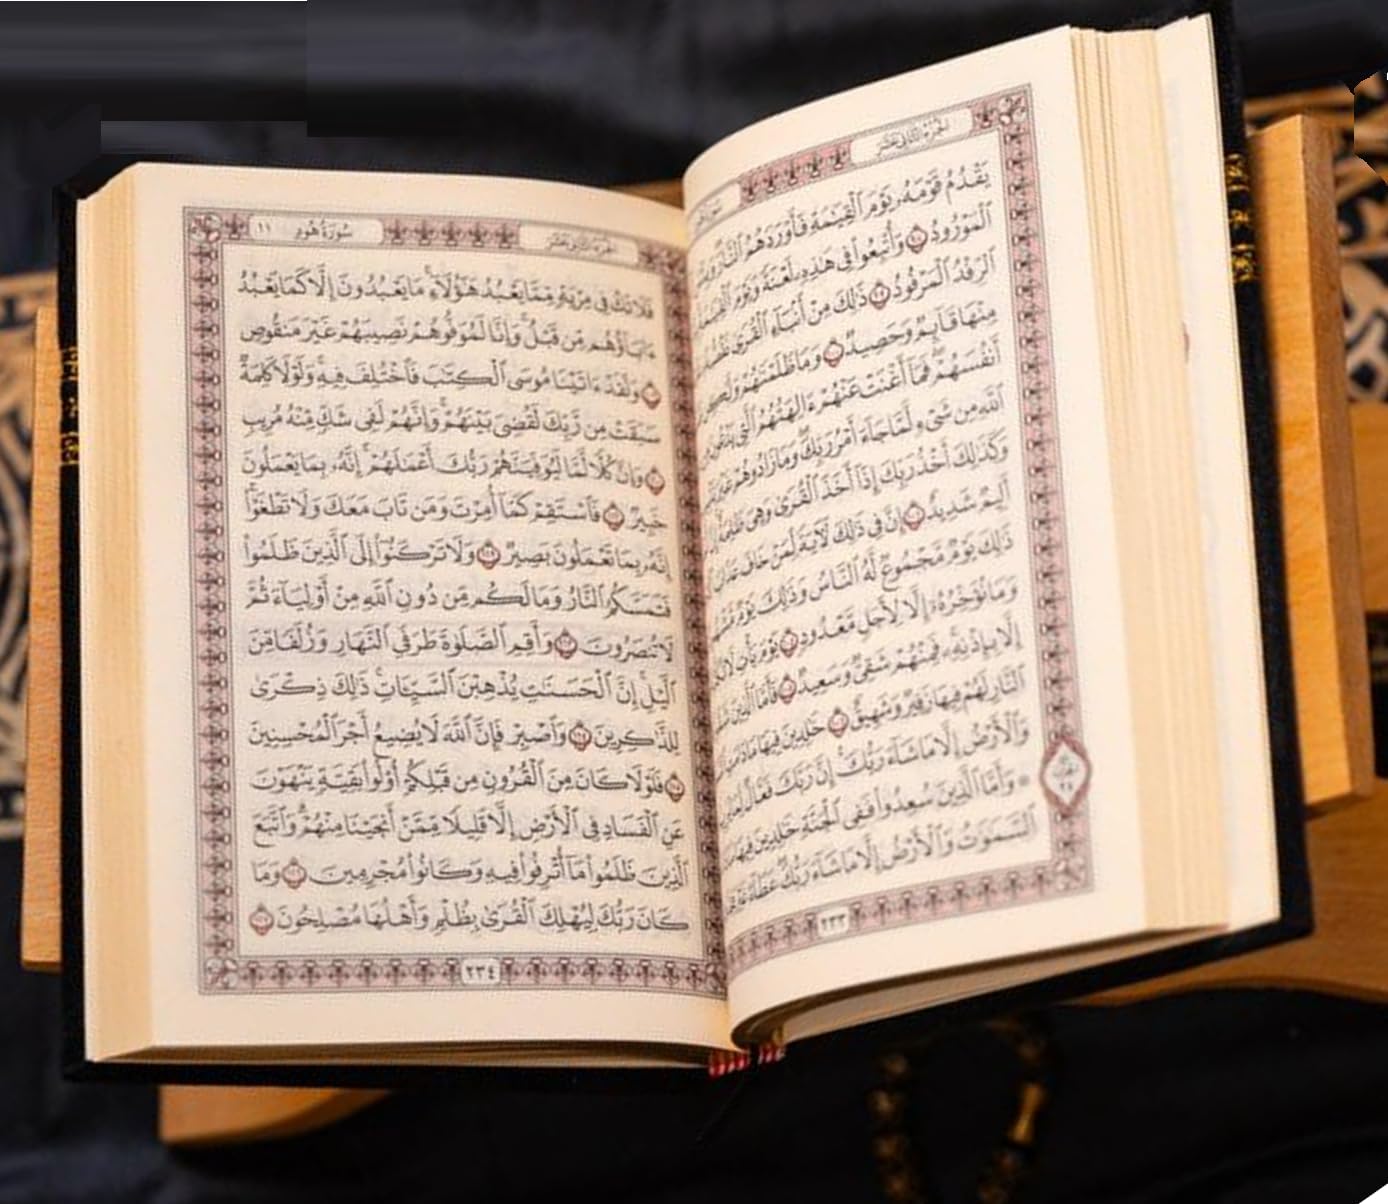 الجزء الثاني عشر
يَقْدُمُ قَوْمَهُۥ يَوْمَ ٱلْقِيَٰمَةِ فَأَوْرَدَهُمُ ٱلنَّارَ
ٱلْمَوْرُودُ ٩٨ وَأُتْبِعُوا۟ فِى هَٰذِهِۦ لَعْنَةً وَيَوْمَ
ٱلرِّفْدُ ٱلْمَرْفُودُ ٩٩ ذَٰلِكَ مِنْ أَنۢبَآءِ ٱلْقُرَىٰ
مِنْهَا قَآئِمٌ وَحَصِيدٌ ١٠٠ وَمَا ظَلَمْنَٰهُمْ وَلَٰكِن
أَنفُسَهُمْ فَمَآ أَغْنَتْ عَنْهُمْ ءَالِهَتُهُمُ ٱلَّتِى
ٱللَّهِ مِن شَىْءٍ لَّمَّا جَآءَ أَمْرُ رَبِّكَ وَمَا زَادُوهُمْ غَيْرَ
وَكَذَٰلِكَ أَخْذُ رَبِّكَ إِذَآ أَخَذَ ٱلْقُرَىٰ وَهِىَ ظَٰلِمَةٌ
أَلِيمٌ شَدِيدٌ ١٠٢ إِنَّ فِى ذَٰلِكَ لَءَايَةً لِّمَنْ خَافَ
ذَٰلِكَ يَوْمٌ مَّجْمُوعٌ لَّهُ ٱلنَّاسُ وَذَٰلِكَ يَوْمٌ
وَمَا نُؤَخِّرُهُۥٓ إِلَّا لِأَجَلٍ مَّعْدُودٍ ١٠٤ يَوْمَ يَأْتِ لَا
إِلَّا بِإِذْنِهِۦ فَمِنْهُمْ شَقِىٌّ وَسَعِيدٌ ١٠٥ فَأَمَّا ٱلَّذِينَ
ٱلنَّارِ لَهُمْ فِيهَا زَفِيرٌ وَشَهِيقٌ ١٠٦ خَٰلِدِينَ فِيهَا
وَٱلْأَرْضُ إِلَّا مَا شَآءَ رَبُّكَ إِنَّ رَبَّكَ فَعَّالٌ
۞ وَأَمَّا ٱلَّذِينَ سُعِدُوا۟ فَفِى ٱلْجَنَّةِ خَٰلِدِينَ فِيهَا
ٱلسَّمَٰوَٰتُ وَٱلْأَرْضُ إِلَّا مَا شَآءَ رَبُّكَ عَطَآءً
٢٣٣
الجزء الثاني عشر
سورة هود ١١
فَلَا تَكُ فِى مِرْيَةٍ مِّمَّا يَعْبُدُ هَٰٓؤُلَآءِ ۚ مَا يَعْبُدُونَ إِلَّا كَمَا يَعْبُدُ
ءَابَآؤُهُم مِّن قَبْلُ ۚ وَإِنَّا لَمُوَفُّوهُمْ نَصِيبَهُمْ غَيْرَ مَنقُوصٍ
١٠٩ وَلَقَدْ ءَاتَيْنَا مُوسَى ٱلْكِتَٰبَ فَٱخْتُلِفَ فِيهِ ۚ وَلَوْلَا كَلِمَةٌ
سَبَقَتْ مِن رَّبِّكَ لَقُضِىَ بَيْنَهُمْ ۚ وَإِنَّهُمْ لَفِى شَكٍّ مِّنْهُ مُرِيبٍ
١١٠ وَإِنَّ كُلًّا لَّمَّا لَيُوَفِّيَنَّهُمْ رَبُّكَ أَعْمَٰلَهُمْ ۚ إِنَّهُۥ بِمَا يَعْمَلُونَ
خَبِيرٌ ١١١ فَٱسْتَقِمْ كَمَآ أُمِرْتَ وَمَن تَابَ مَعَكَ وَلَا تَطْغَوْا۟ ۚ
إِنَّهُۥ بِمَا تَعْمَلُونَ بَصِيرٌ ١١٢ وَلَا تَرْكَنُوٓا۟ إِلَى ٱلَّذِينَ ظَلَمُوا۟
فَتَمَسَّكُمُ ٱلنَّارُ وَمَا لَكُم مِّن دُونِ ٱللَّهِ مِنْ أَوْلِيَآءَ ثُمَّ
لَا تُنصَرُونَ ١١٣ وَأَقِمِ ٱلصَّلَوٰةَ طَرَفَىِ ٱلنَّهَارِ وَزُلَفًا مِّنَ
ٱلَّيْلِ ۚ إِنَّ ٱلْحَسَنَٰتِ يُذْهِبْنَ ٱلسَّيِّـَٔاتِ ۚ ذَٰلِكَ ذِكْرَىٰ
لِلذَّٰكِرِينَ ١١٤ وَٱصْبِرْ فَإِنَّ ٱللَّهَ لَا يُضِيعُ أَجْرَ ٱلْمُحْسِنِينَ
١١٥ فَلَوْلَا كَانَ مِنَ ٱلْقُرُونِ مِن قَبْلِكُمْ أُو۟لُوا۟ بَقِيَّةٍ يَنْهَوْنَ
عَنِ ٱلْفَسَادِ فِى ٱلْأَرْضِ إِلَّا قَلِيلًا مِّمَّنْ أَنجَيْنَا مِنْهُمْ ۗ وَٱتَّبَعَ
ٱلَّذِينَ ظَلَمُوا۟ مَآ أُتْرِفُوا۟ فِيهِ وَكَانُوا۟ مُجْرِمِينَ ١١٦ وَمَا
كَانَ رَبُّكَ لِيُهْلِكَ ٱلْقُرَىٰ بِظُلْمٍ وَأَهْلُهَا مُصْلِحُونَ ١١٧
٢٣٤